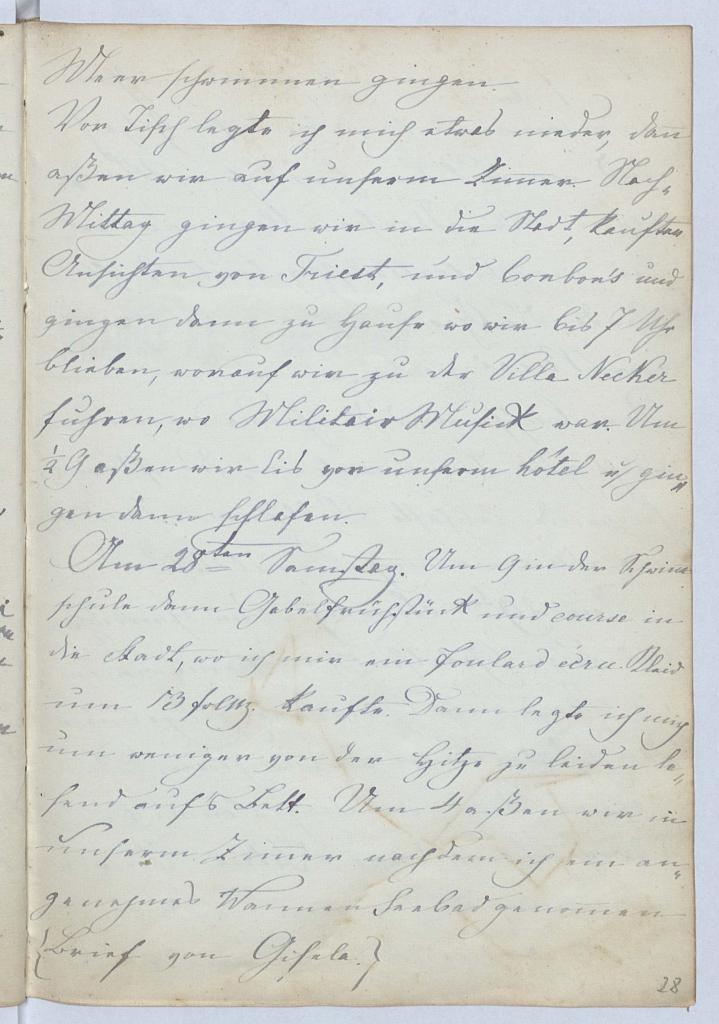 Meer schwimmen gingen.
Vor Tisch legte ich mich etwas nieder, dann
aßen wir auf unserm Zimer. Nach-
Mittag gingen wir in die Stadt, kauften
Ansichten von Triest, und Bonbon's und
gingen dann zu Hause wo wir bis 7 Uhr
blieben, worauf wir zu der Villa Necker
fuhren, wo Militair Musick war. Um
½ 9 aßen wir Eis vor unserm hôtel u/ gin-
gen dann schlafen.
Am 28ten Samstag. Um 9 in der Schwim
schule dann Gabelfrühstück und course in
die Stadt, wo ich mir ein foulard écru Kleid
um 53 kaufte. Dann legte ich mich
um weniger von der Hitze zu leiden le-
send aufs Bett. Um 4 aßen wir in
unserm Zimmer nachdem ich ein an-
genehmes Wannen Seebad genomen
{Brief von Gisela.}
28